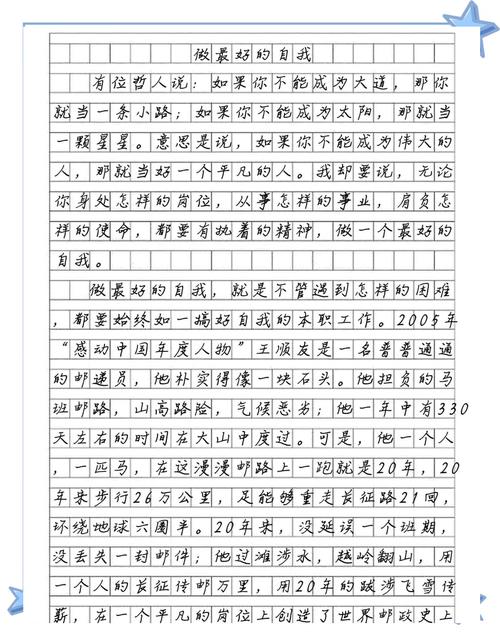 做最好的自我
有位哲人说：如果你不能成为大道，那你
就当一条小路；如果你不能成为太阳，那就当
一颗星星。意思是说，如果你不能成为伟大的
人，那就当好一个平凡的人。我却要说，无论
你身处怎样的岗位，从事怎样的事业，肩负怎
样的使命，都要有执着的精神，做一个最好的
自我。
做最好的自我，就是不管遇到怎样的困难
，都要始终如一搞好自我的本职工作。2005年
“感动中国年度人物”王顺友是一名普普通通
的邮递员，他朴实得像一块石头。他担负的马
班邮路，山高路险，气候恶劣；他一年中有330
天左右的时间在大山中度过。可是，他一个人
，一匹马，在这漫漫邮路上一跑就是20年，20
年来步行26万公里，足能够重走长征路21回，
环绕地球六圈半。20年来，没延误一个班期，
没丢失一封邮件；他过滩涉水，越岭翻山，用
一个人的长征传邮万里，用20年的跋涉飞雪传
薪，在一个平凡的岗位上创造了世界邮政史上